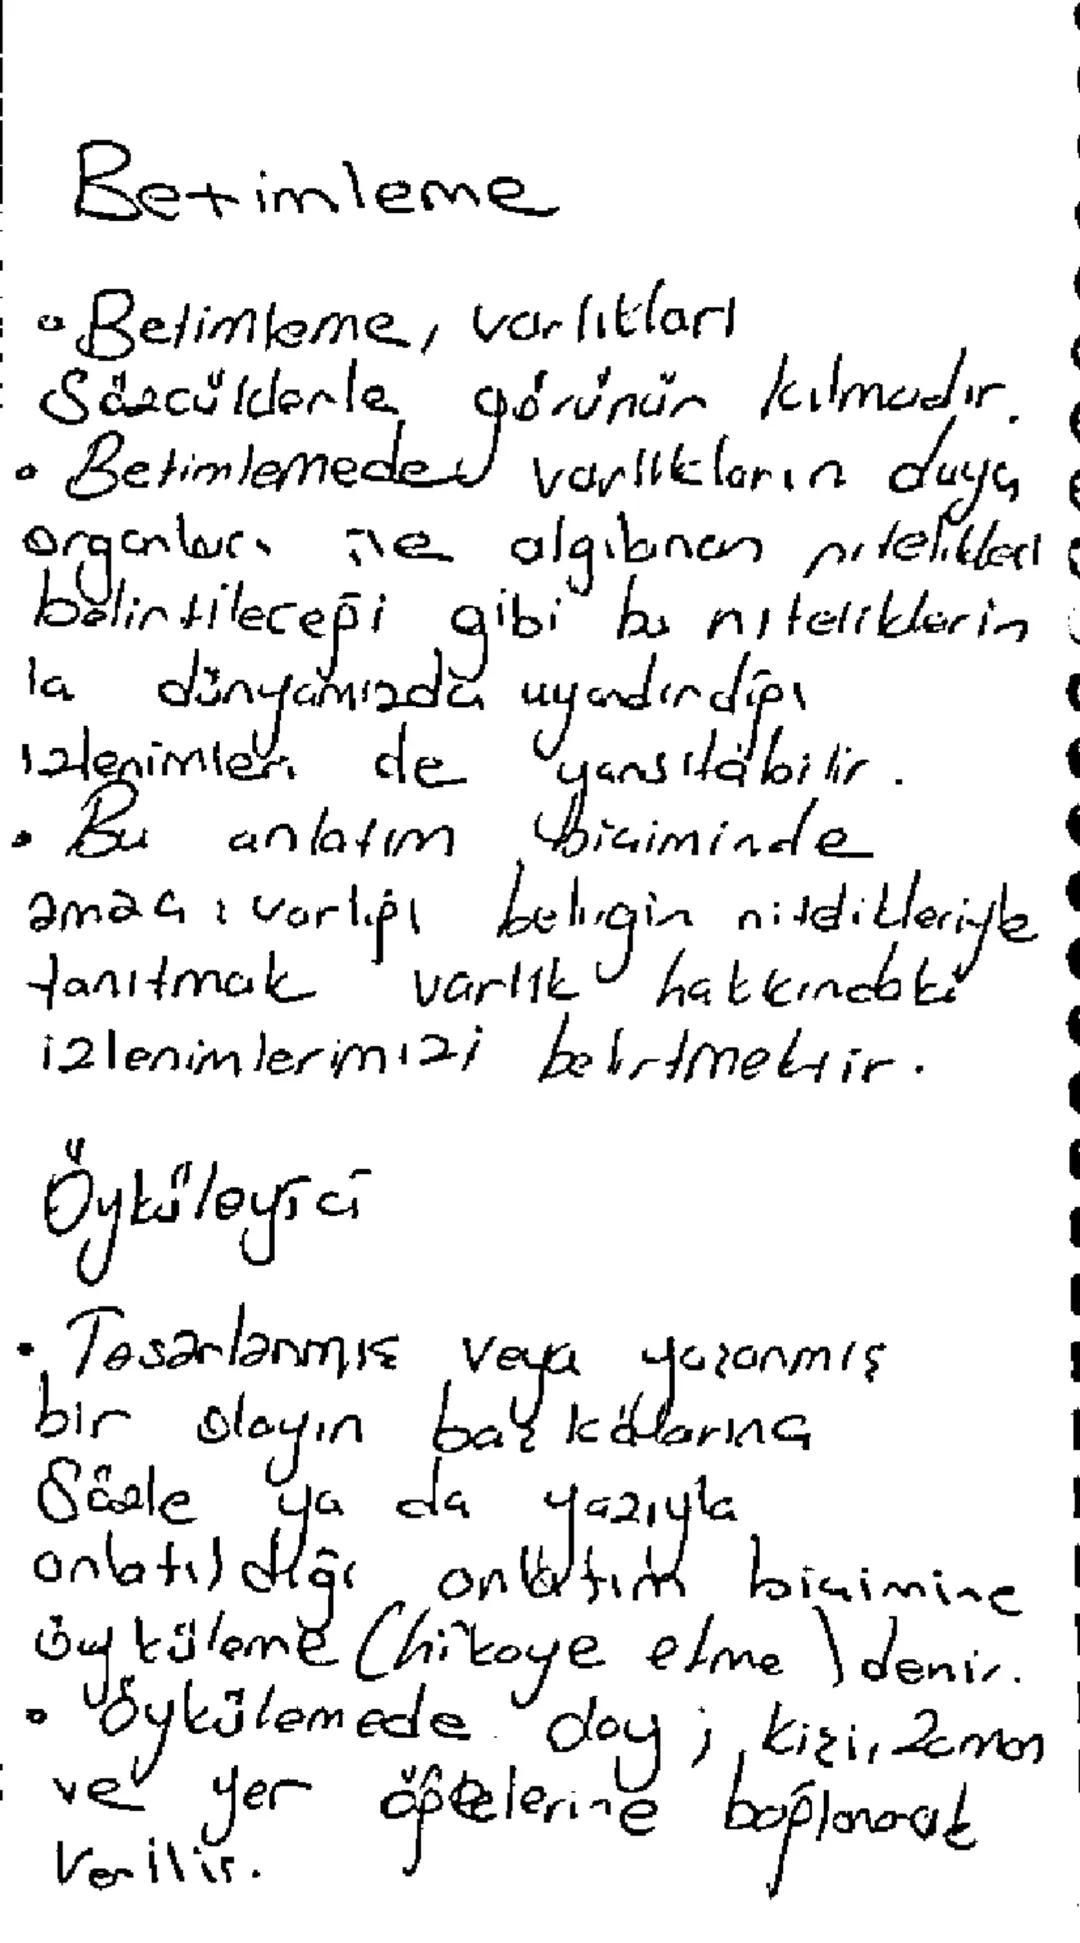 Betimleme
• Betimleme, varlıkları
Sözcüklerle görünür kılmadır.
• Betimlemede varlıkların duyu
organları ile algılanan nitelikleri
belirtileceği gibi bu niteliklerin
iç dünyamızda uyandırdığı
izlenimleri de yansıtabilir.
• Bu anlatım biçiminde
amaç: varlığı belirgin nitelikleriyle
tanıtmak varlık hakkındaki
izlenimlerimizi belirtmektir.
Öyküleyici
• Tasarlanmış veya yazanmış
bir olayın başkalarına
Sözle ya da yazıyla
anlatıldığı anlatım biçimine
öyküleme (hikaye etme) denir.
• Öykülemede olay; kişi, zaman
ve yer öğelerine bağlanarak
verilir.